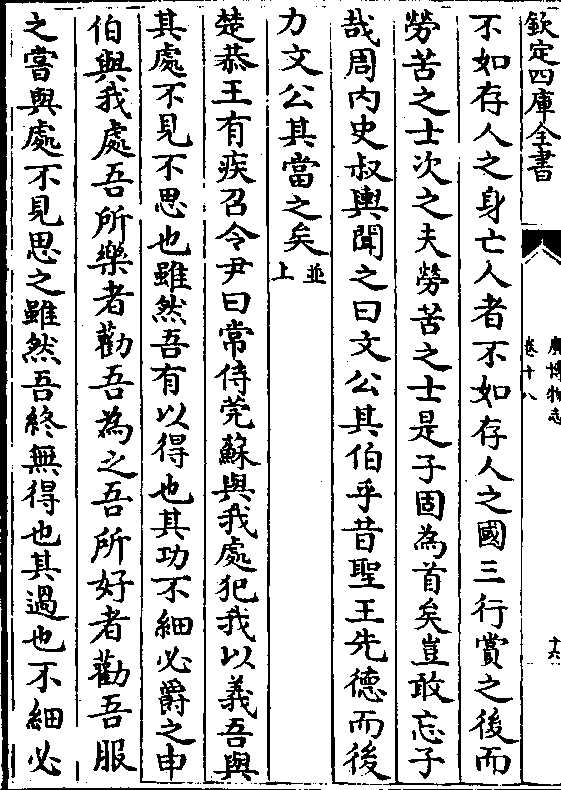 欽定四庫全書
廣博物志
卷十八
十六
不如存人之身亡人者不如存人之國三行賞之後而
勞苦之士次之夫勞苦之士是子固為首矣豈敢忘子
哉周内史叔輿聞之曰文公其伯乎昔聖王先德而後
力文公其當之矣並上
楚恭王有疾召令尹曰常侍莞蘇與我處犯我以義吾與
其處不見不思也雖然吾有以得也其功不細必爵之申
伯與我處吾所樂者勸吾為之吾所好者勸吾服
之嘗與處不見思之雖然吾終無得也其過也不細必